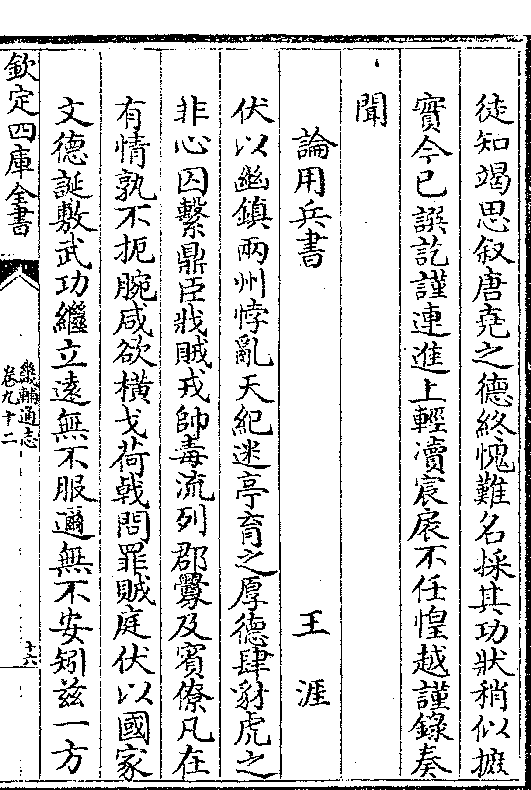 徒知竭思叙唐堯之德終愧難名採其功狀稍似摭
實今已譔訖謹連進上輕瀆宸扆不任惶越謹錄奏
聞
論用兵書　王涯
伏以幽鎮兩州悖亂天紀迷亭育之厚德肆豺虎之
非心囚繫鼎臣戕賊戎帥毒流列郡釁及賓僚凡在
有情孰不扼腕咸欲橫戈荷戟問罪賊庭伏以國家
文德誕敷武功繼立遠無不服邇無不安矧兹一方
欽定四庫全書
畿輔通志
卷九十二
十六